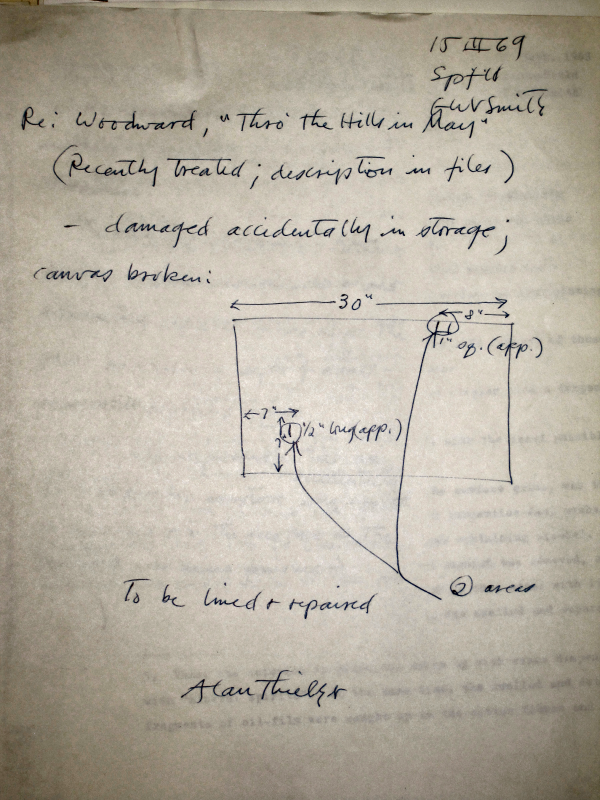 15 III 69
Spfld
GWV Smith
Re: Woodward, "Thro' the Hills in May"
(Recently treated; description in files)
- damaged accidentally in storage;
canvas broken:
30"
8"
1" sq. (app.)
7"
1/2" long (app.)
7"
2 areas
To be lined + repaired
Alan Thielker